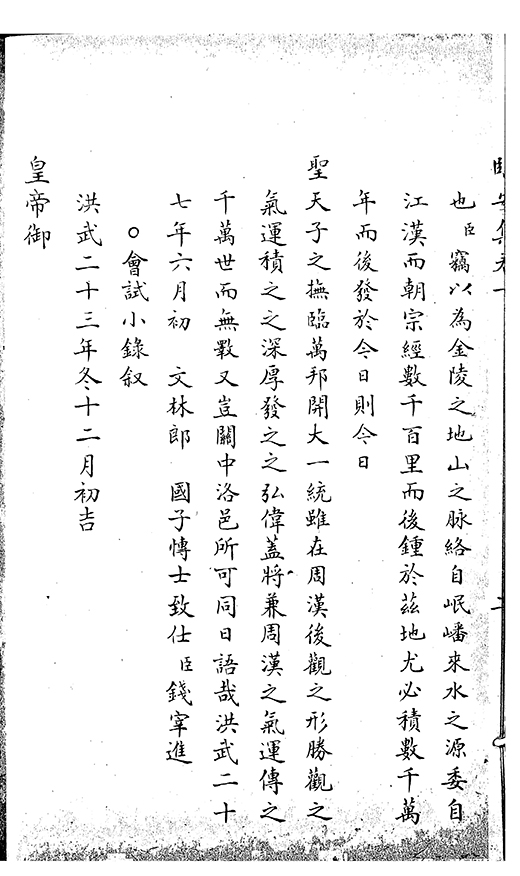 也臣竊以為金陵之地山之脉絡自岷嶓來水之源委自
江漢而朝宗經數千百里而後鍾於茲地尤必積數千萬
年而後發於今日則今日
聖天子之撫臨萬邦開大一統雖在周漢後觀之形勝觀之
氣運積之之深厚發之之弘偉蓋將兼周漢之氣運傳之
千萬世而無斁又豈關中洛邑所可同日語哉洪武二十
七年六月初 文林郎 國子博士致仕臣錢宰進
○會試小錄叙
洪武二十三年冬十二月初吉
皇帝御